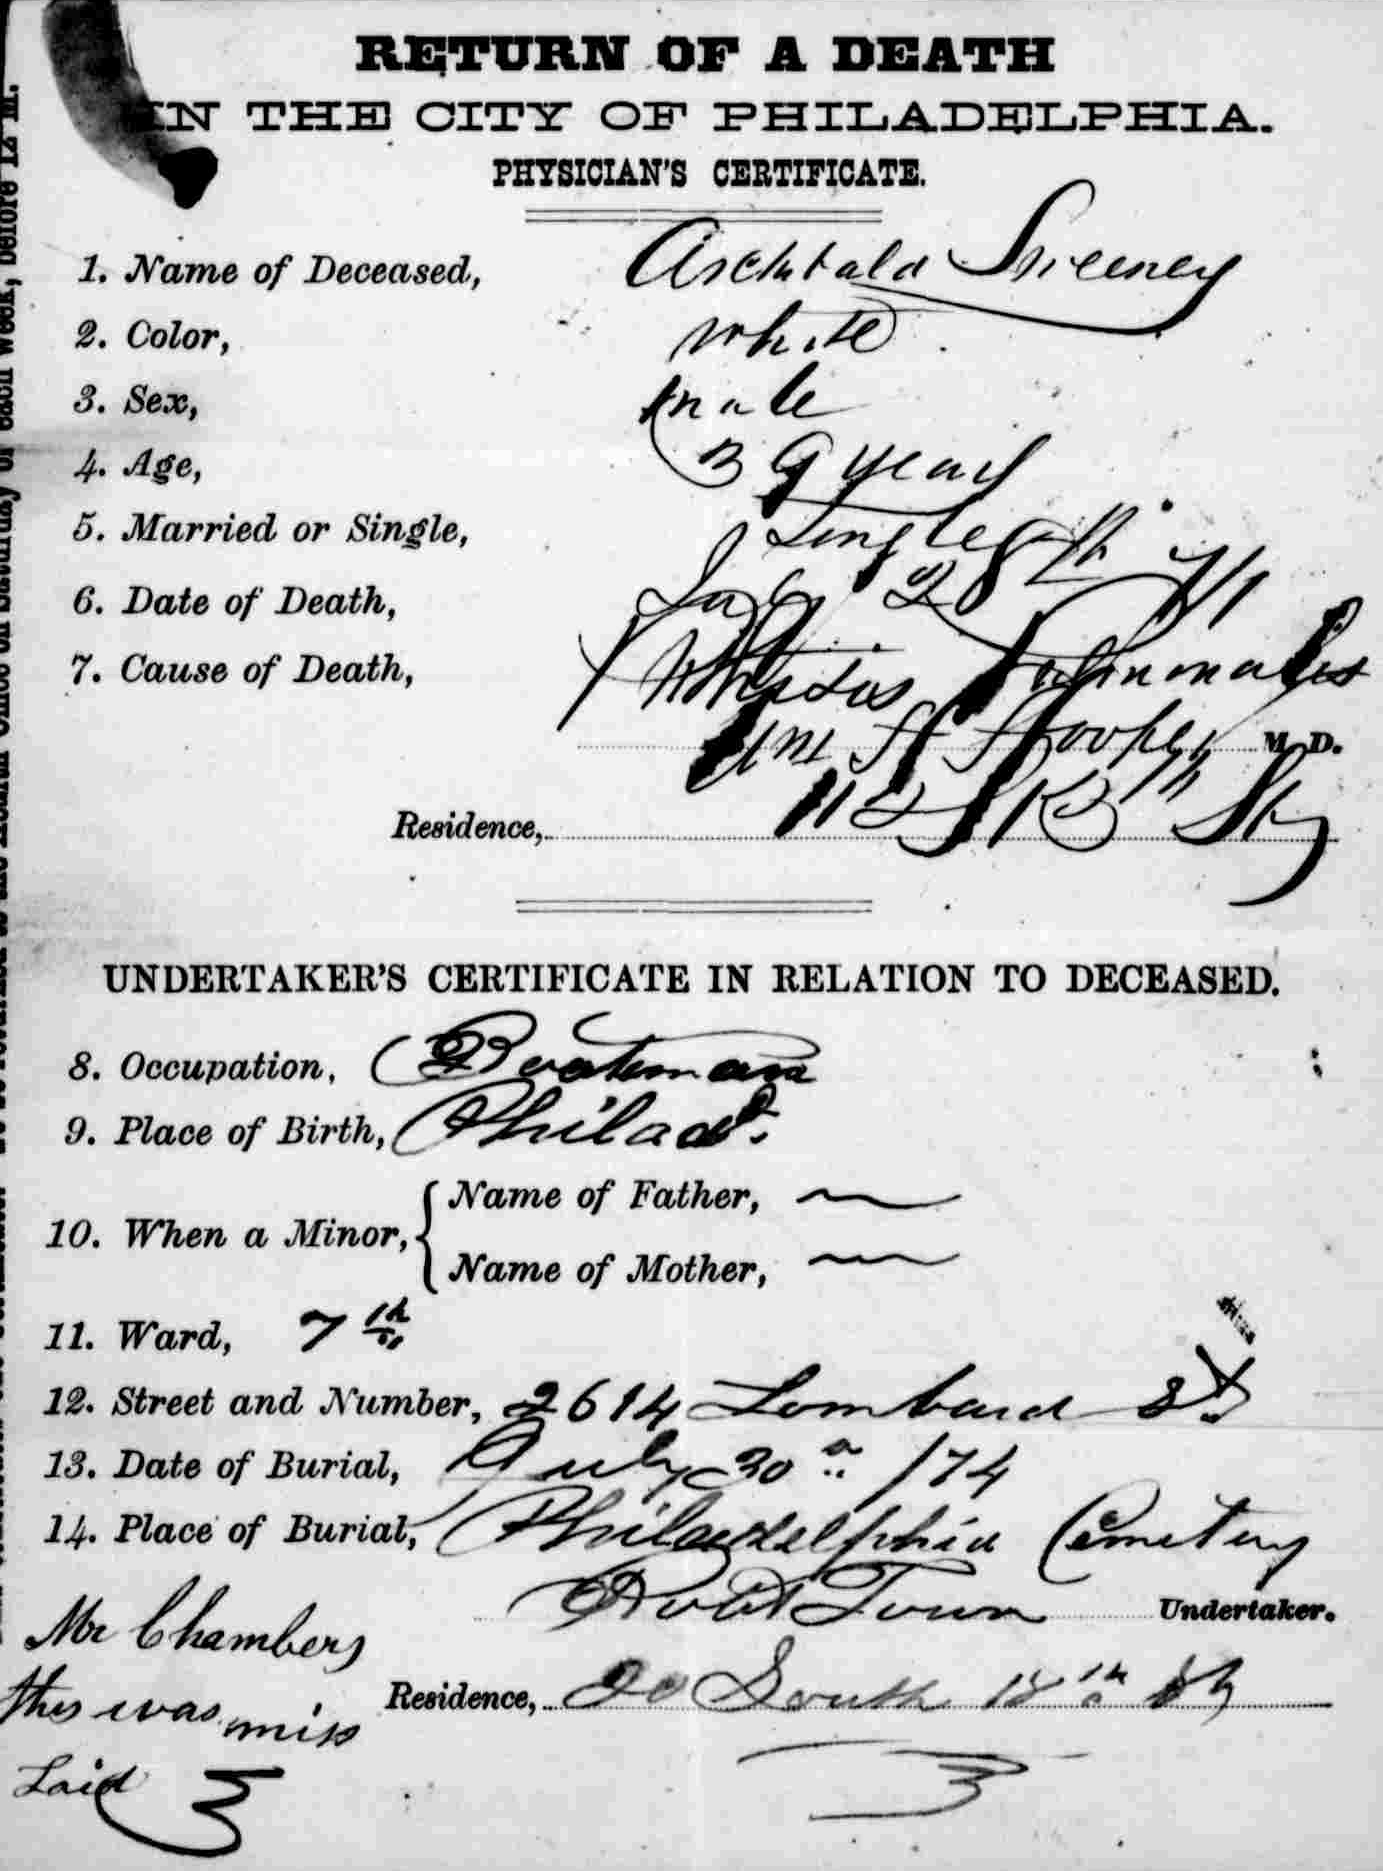 RETURN OF A DEATH
IN THE CITY OF PHILADELPHIA.
PHYSICIAN'S CERTIFICATE.
1. Name of Deceased, Archibald Sweeney
2. Color, white
3. Sex, male
4. Age, 39 years
5. Married or Single, Single
6. Date of Death, July 28th 74
7. Cause of Death, Phthisis Pulmonalis
Wm H Hooper M. D.
Residence, 112 S 13th St
UNDERTAKER'S CERTIFICATE IN RELATION TO DECEASED.
8. Occupation, Boatman
9. Place of Birth, Philad.
10. When a Minor, { Name of Father, —
Name of Mother, —
11. Ward, 7th
12. Street and Number, 2614 Lombard St
13. Date of Burial, July 30 /74
14. Place of Burial, Philadelphia Cemetery
Robt Town Undertaker.
Mr Chambers
Residence, 20 South 18th St
this was miss
Laid